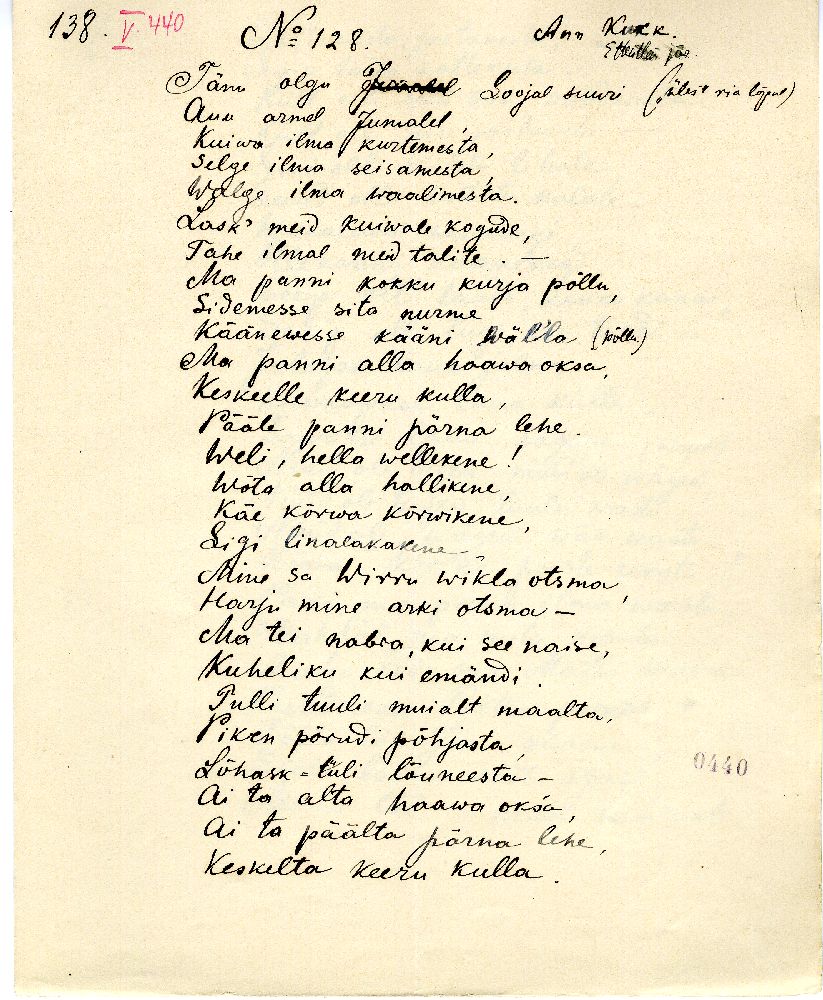 138. V. 440
No 128.
Ann Kukk.
Tänu olgu Loojal suuri
Auu armel Jumalel,
Kuiwa ilma kurtemesta,
Selge ilma seisamesta,
Walge ilma waalimesta.
Lask' meid kuiwale kogude,
Tahe ilmal meid talite. —
Ma panni kokku kurja põllu,
Sidemesse sita nurme
Käänewesse kääni wäl'la (põllu)
Ma panni alla haawa oksa,
Keskeelle keeru kulla,
Pääle panni pärna lehe.
Weli, hella wellekene!
Wõta alla hallikene,
Käe kõrwa kõrwikene,
Ligi linalakakene
Mine sa Wirru wikla otsma,
Harju mine arki otsma —
Ma tei nabra, kui see naise,
Kuheliku kui emändi.
Tulli tuuli muialt maalta,
Piken põrudi põhjasta,
Lõhask-tuli lõuneesta —
Ai ta alta haawa oksa,
Ai ta päälta pärna lehe,
Keskelta keeru kulla.
0440